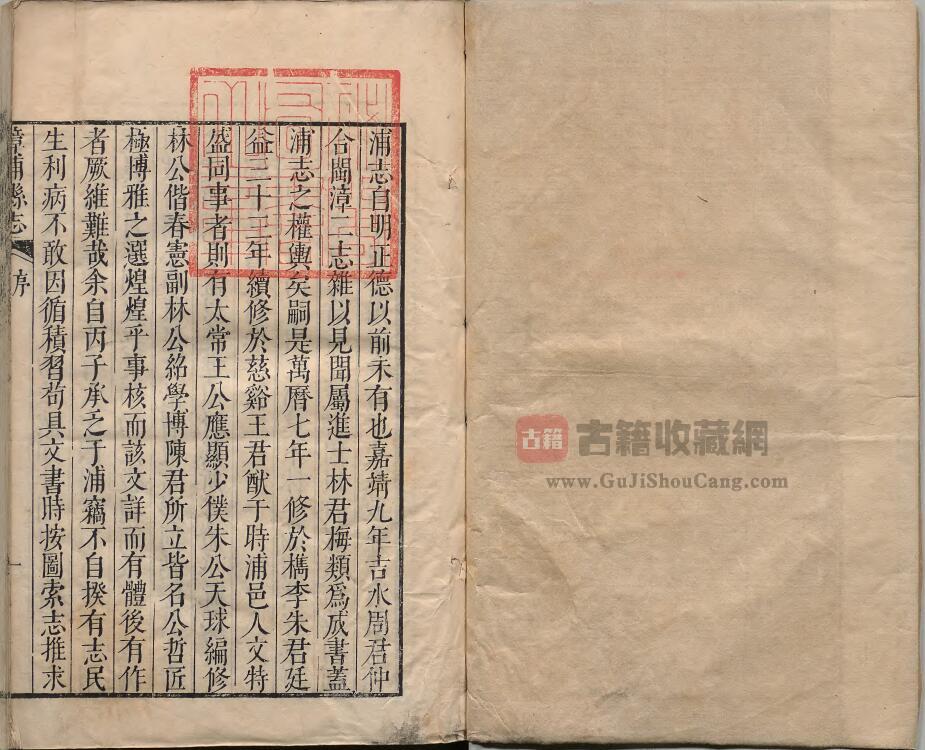 浦志自明正德以前未有也嘉靖九年吉水周君仲
合閩漳二志雜以見聞屬進士林君梅類爲成書蓋
浦志之權輿矣嗣是萬曆七年一修於檇李朱君廷
益三十二年續修於慈谿王君猷于時浦邑人文特
盛同事者則有太常王公應顯少僕朱公天球編修
林公偕春憲副林公綋學博陳君所立皆名公哲匠
極博雅之選煌煌乎事核而該文詳而有體後有作
者厥維難哉余自丙子承乏于浦竊不自揆有志民
生利病不敢因循積習苟具文書時按圖索志推求
漳浦縣志
序
一
古籍
古籍收藏網
www.GuJiShouCang.com